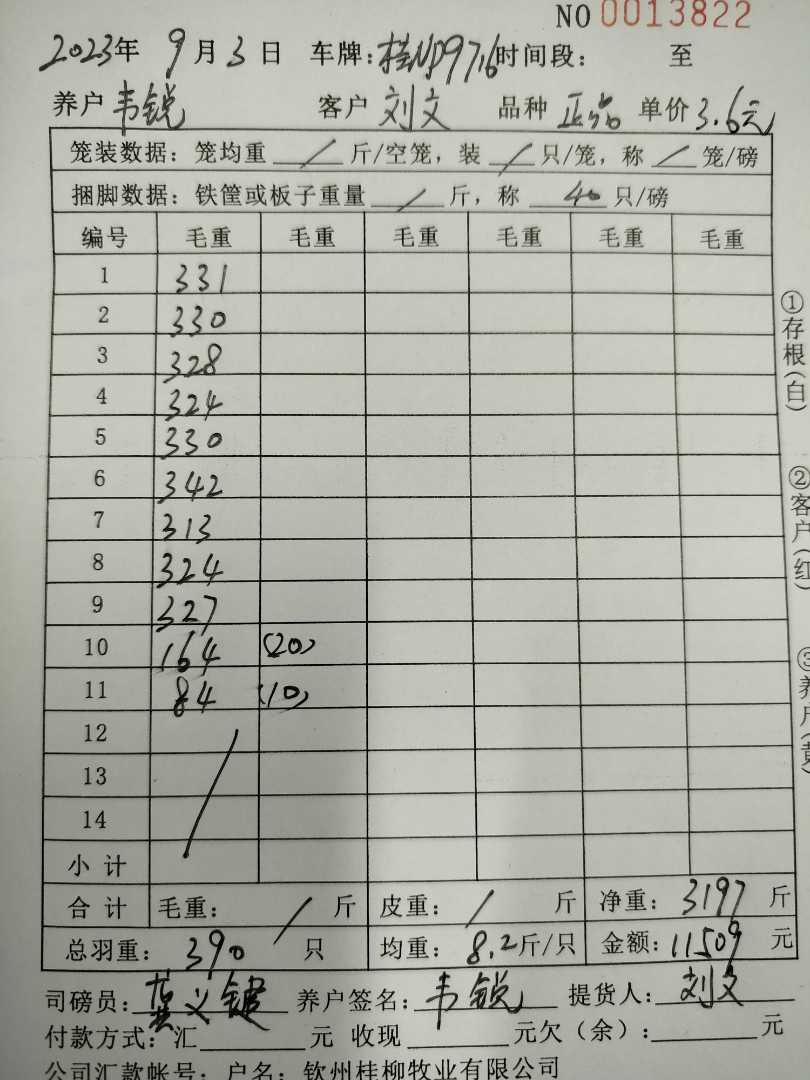 NO 0013822
2023年 9月3日 车牌:桂ND9716 时间段: 至
养户 韦锐 客户 刘文 品种 正品 单价 3.6元
笼装数据: 笼均重 / 斤/空笼, 装 / 只/笼, 称 / 笼/磅
捆脚数据: 铁筐或板子重量 / 斤, 称 40 只/磅
编号 毛重 毛重 毛重 毛重 毛重 毛重
1 331
2 330
3 328
4 324
5 330
6 342
7 313
8 324
9 327
10 164 (20)
11 84 (10)
12
13
14
小计
合计 毛重: / 斤 皮重: / 斤 净重: 3197 斤
总羽重: 390 只 均重: 8.2斤/只 金额: 11509 元
司磅员: 龚义键 养户签名: 韦锐 提货人: 刘文
付款方式: 汇 元 收现 元欠(余): 元
公司汇款帐号: 户名: 钦州桂柳牧业有限公司
①存根(白)
②客户(红)
③养户(黄)